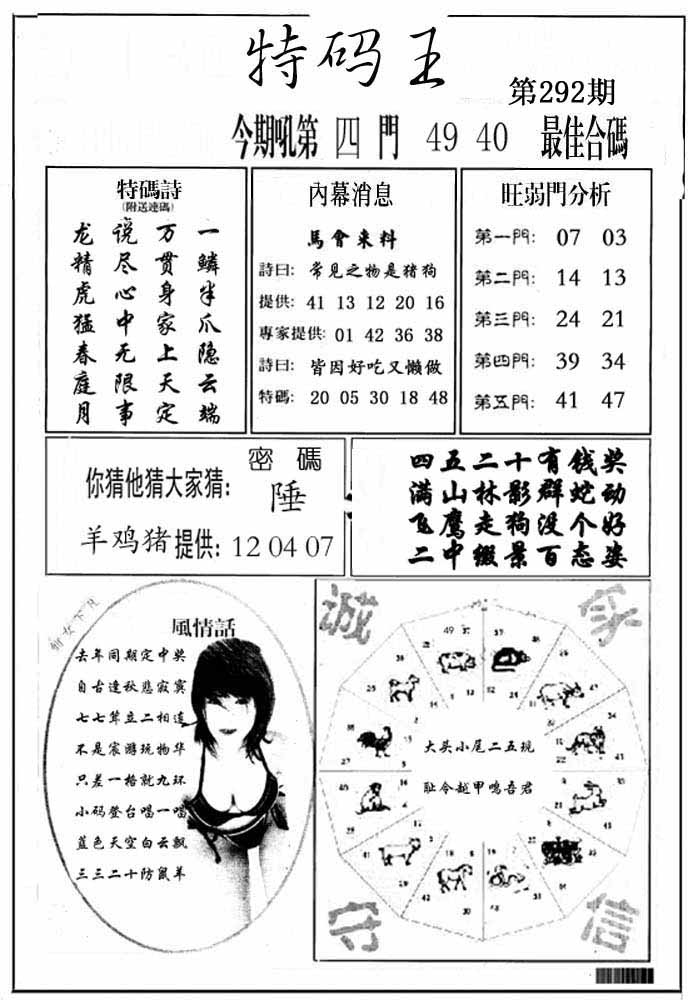 特码王
第292期
今期吼第 四 門 49 40 最佳合碼
特碼詩
(附送連碼)
龙说万一
精尽贯鳞
虎心身半
猛中家爪
春无上隐
庭限天云
月事定端
內幕消息
馬會来料
詩曰: 常见之物是猪狗
提供: 41 13 12 20 16
專家提供: 01 42 36 38
詩曰: 皆因好吃又懒做
特碼: 20 05 30 18 48
旺弱門分析
第一門: 07 03
第二門: 14 13
第三門: 24 21
第四門: 39 34
第五門: 41 47
密碼
你猜他猜大家猜: 陲
羊鸡猪 提供: 12 04 07
四五二十有钱奖
满山林影群蛇动
飞鹰走狗没个好
二中缀景百态姿
風情話
去年同期定中奖
自古逢秋悲寂寞
七七茸立二相连
不是宸游玩物华
只差一格就九环
小码登台唱一唱
蓝色天空白云飘
三三二十防鼠羊
诚
家
守
信
大头小尾二五现
耻令越甲鸣吾君
49 37